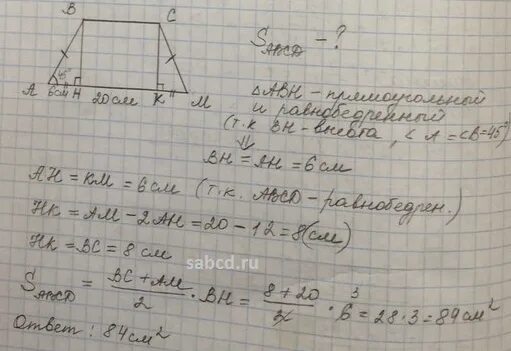 B C
S ABCD – ?
45°
A 6см H 20см K M
△ABH – прямоугольный
и равнобедренный
(т.к BH – высота, ∠A = ∠B = 45°)
⇓
BH = AH = 6 см
AH = KM = 6 см (т.к. ABCD – равнобедрен.)
HK = AM – 2AH = 20 – 12 = 8 (см)
HK = BC = 8 см
sabcd.ru
S ABCD = (BC + AM)/2 · BH = (8 + 20)/2 · 6 3 = 28 · 3 = 84 см²
Ответ: 84 см²